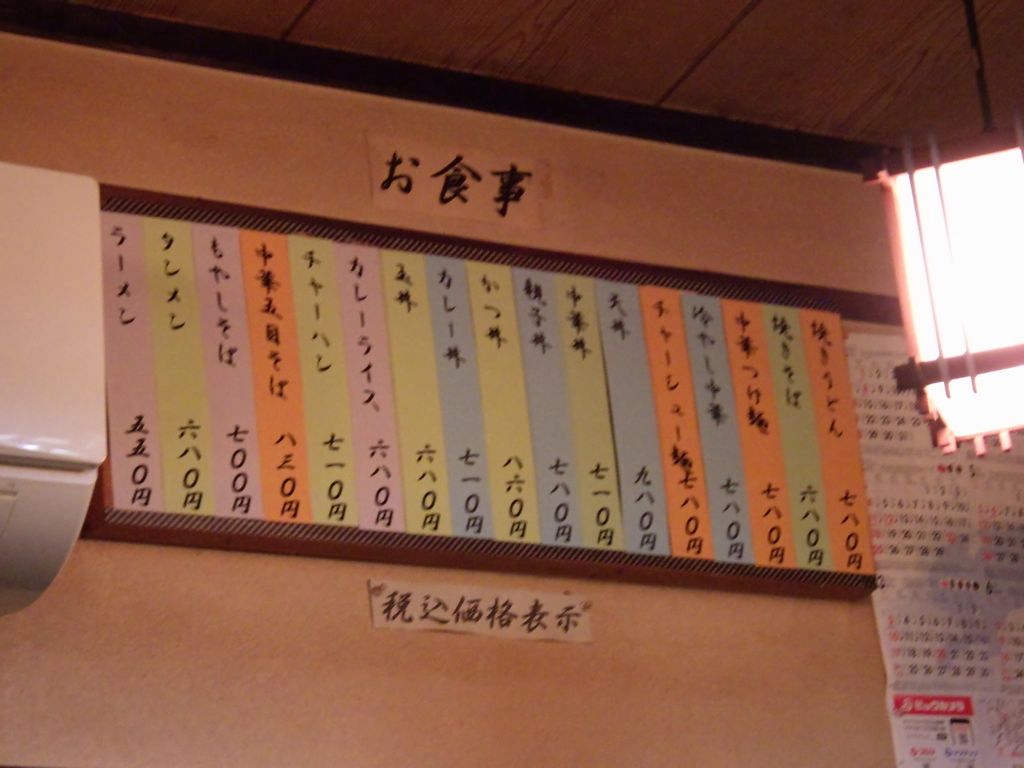 お食事
焼きうどん 七八〇円
焼きそば 六八〇円
中華つけ麺 七八〇円
冷やし中華 七八〇円
チャーシュー麺 七八〇円
天丼 九八〇円
中華丼 七一〇円
親子丼 七八〇円
かつ丼 八六〇円
カレー丼 七一〇円
玉丼 六八〇円
カレーライス 六八〇円
チャーハン 七一〇円
中華五目そば 八三〇円
もやしそば 七〇〇円
タンメン 六八〇円
ラーメン 五五〇円
税込価格表示